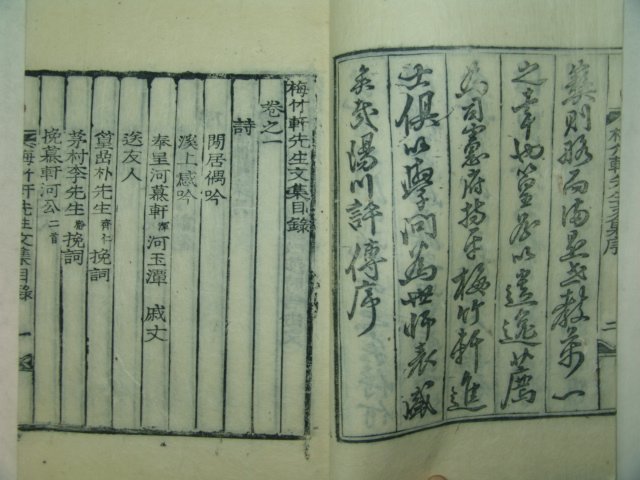 集則略而滿是之教萬一
之幸也篁嵒以遺逸薦
爲司憲府持平梅竹軒進
士俱以學問爲世師表盛
矣哉陽川許傳序
梅竹軒先生文集序
二
梅竹軒先生文集目錄
卷之一
詩
閒居偶吟
溪上感吟
奉呈河慕軒渾河玉潭 戚丈
送友人
篁嵒朴先生齊仁挽詞
茅村李先生瀞挽詞
挽慕軒河公二首
梅竹軒先生文集目錄
一